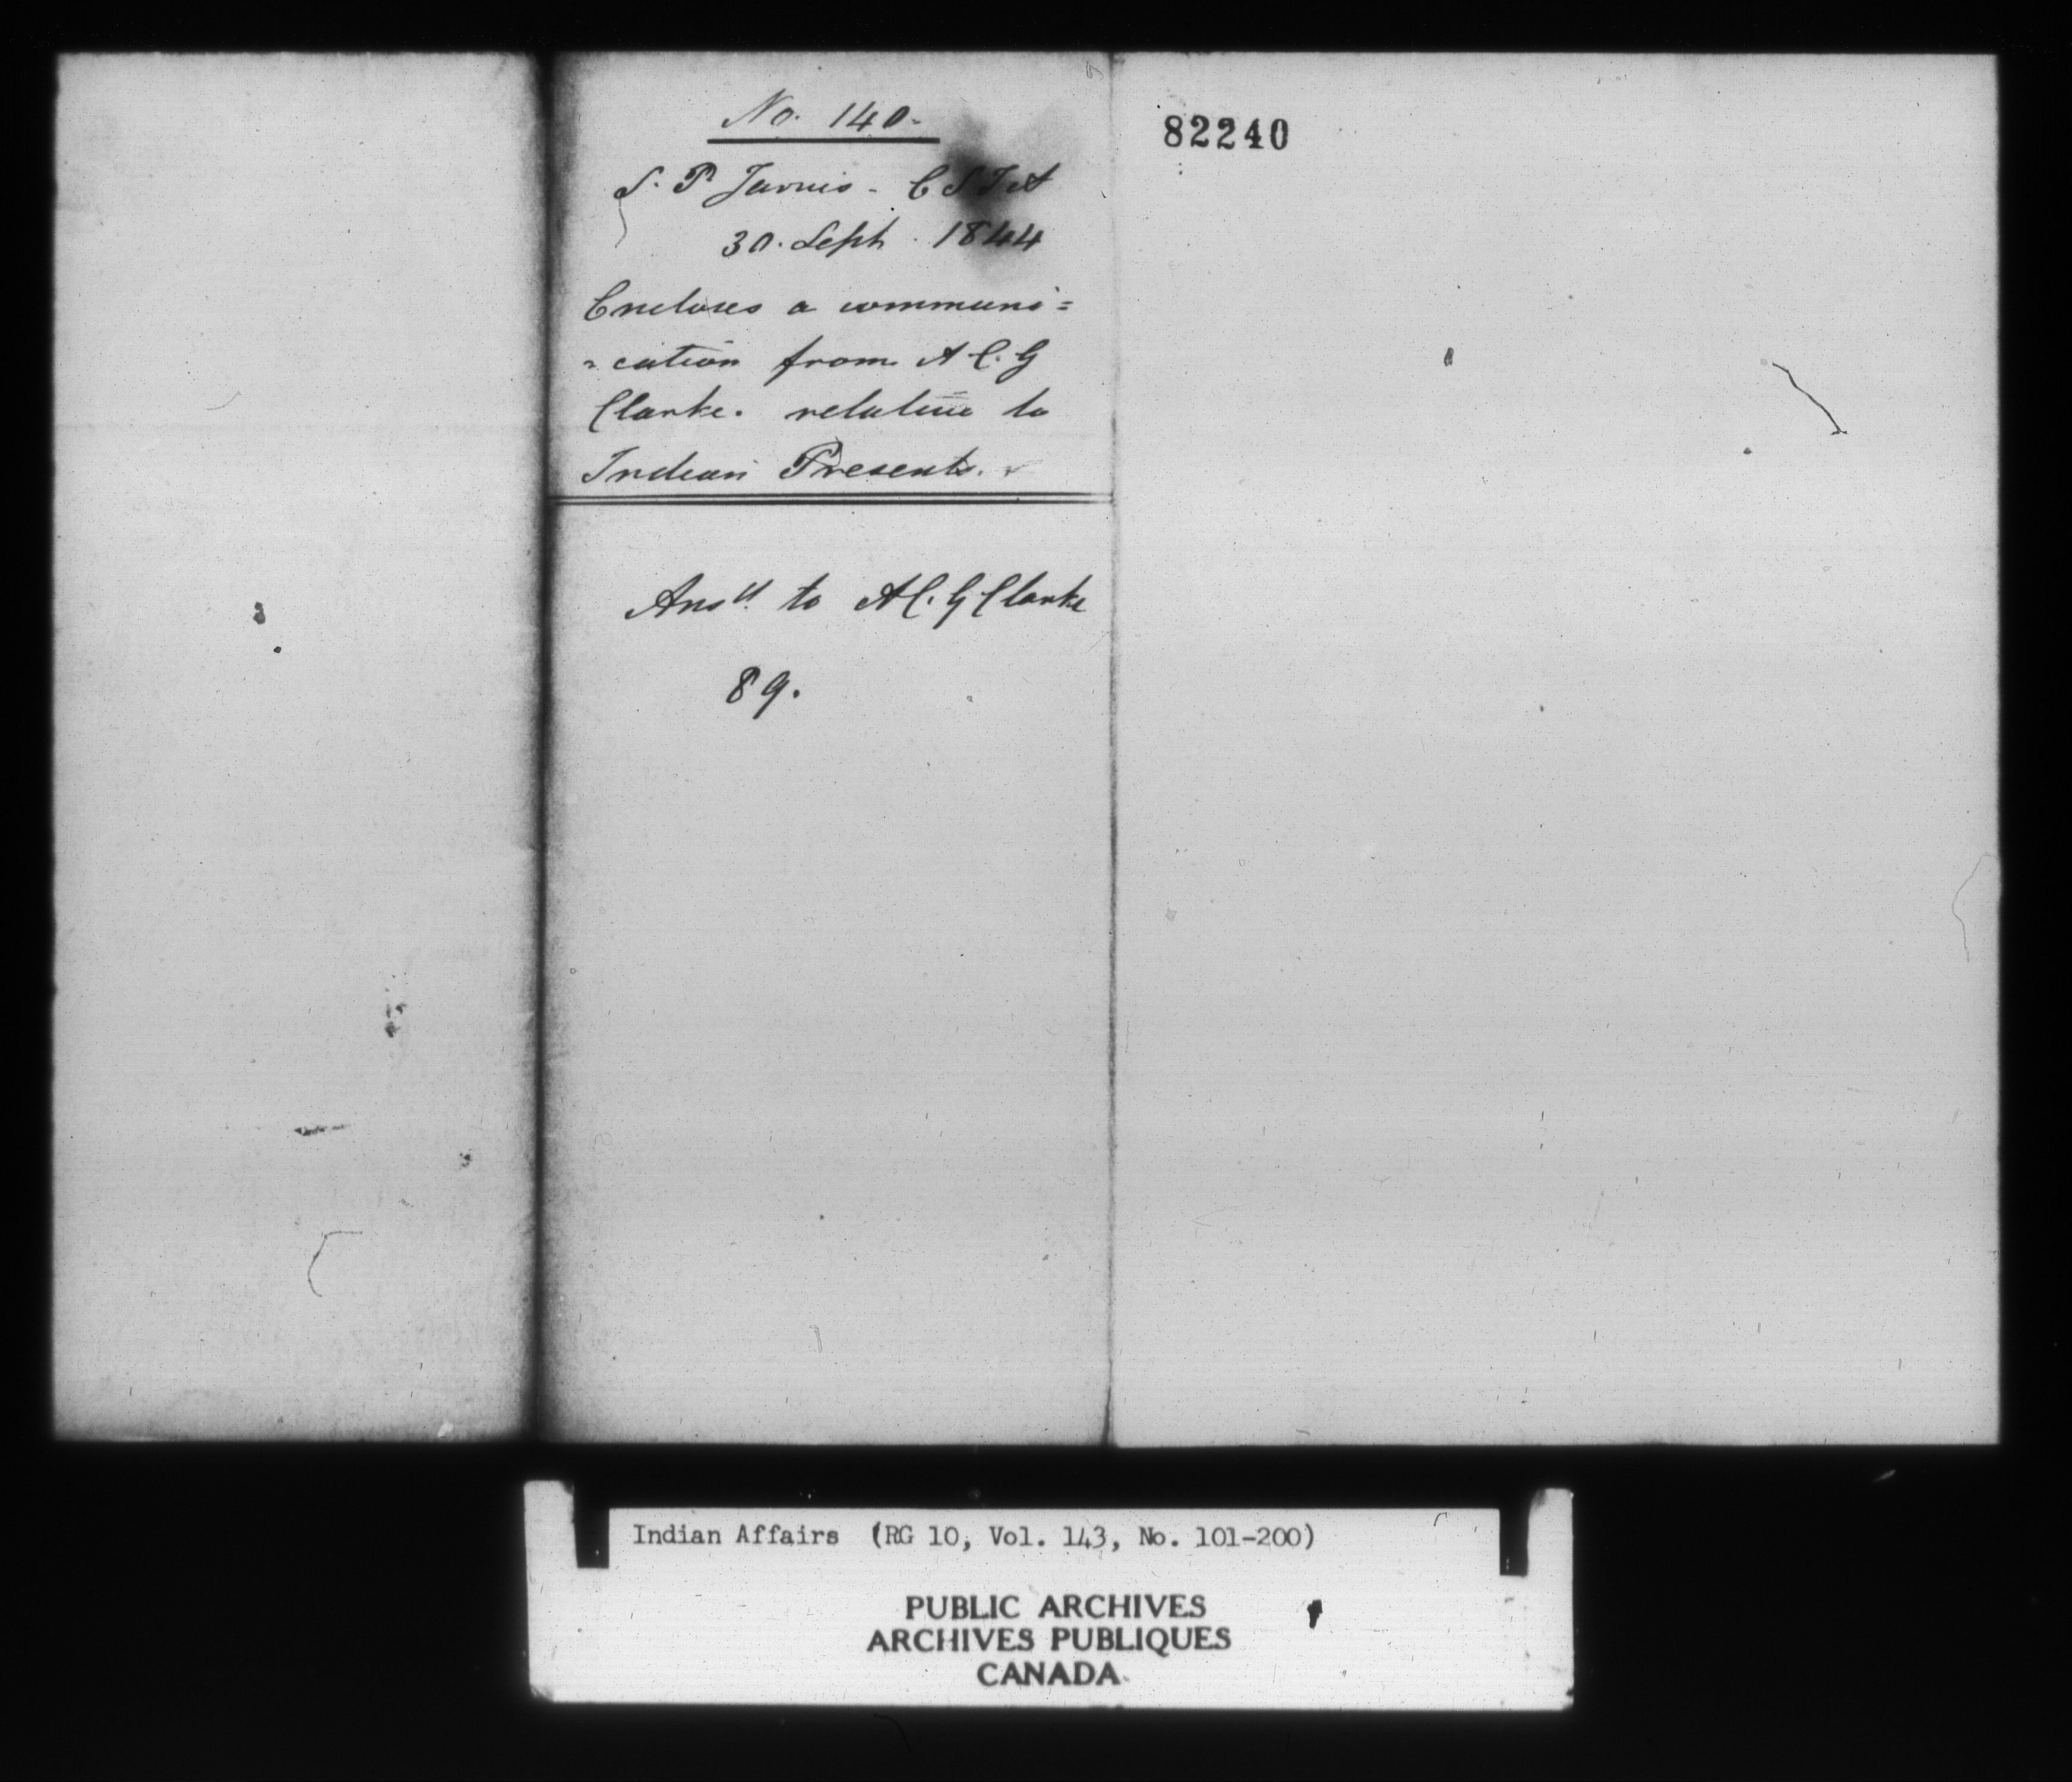 No. 140.
S. P. Jarvis - C S I A
30. Sept. 1844
Encloses a communi=
=cation from A C. G
Clarke. relative to
Indian Presents.
Ansd. to A C. G Clarke
89.
82240
Indian Affairs (RG 10, Vol. 143, No. 101-200)
PUBLIC ARCHIVES
ARCHIVES PUBLIQUES
CANADA